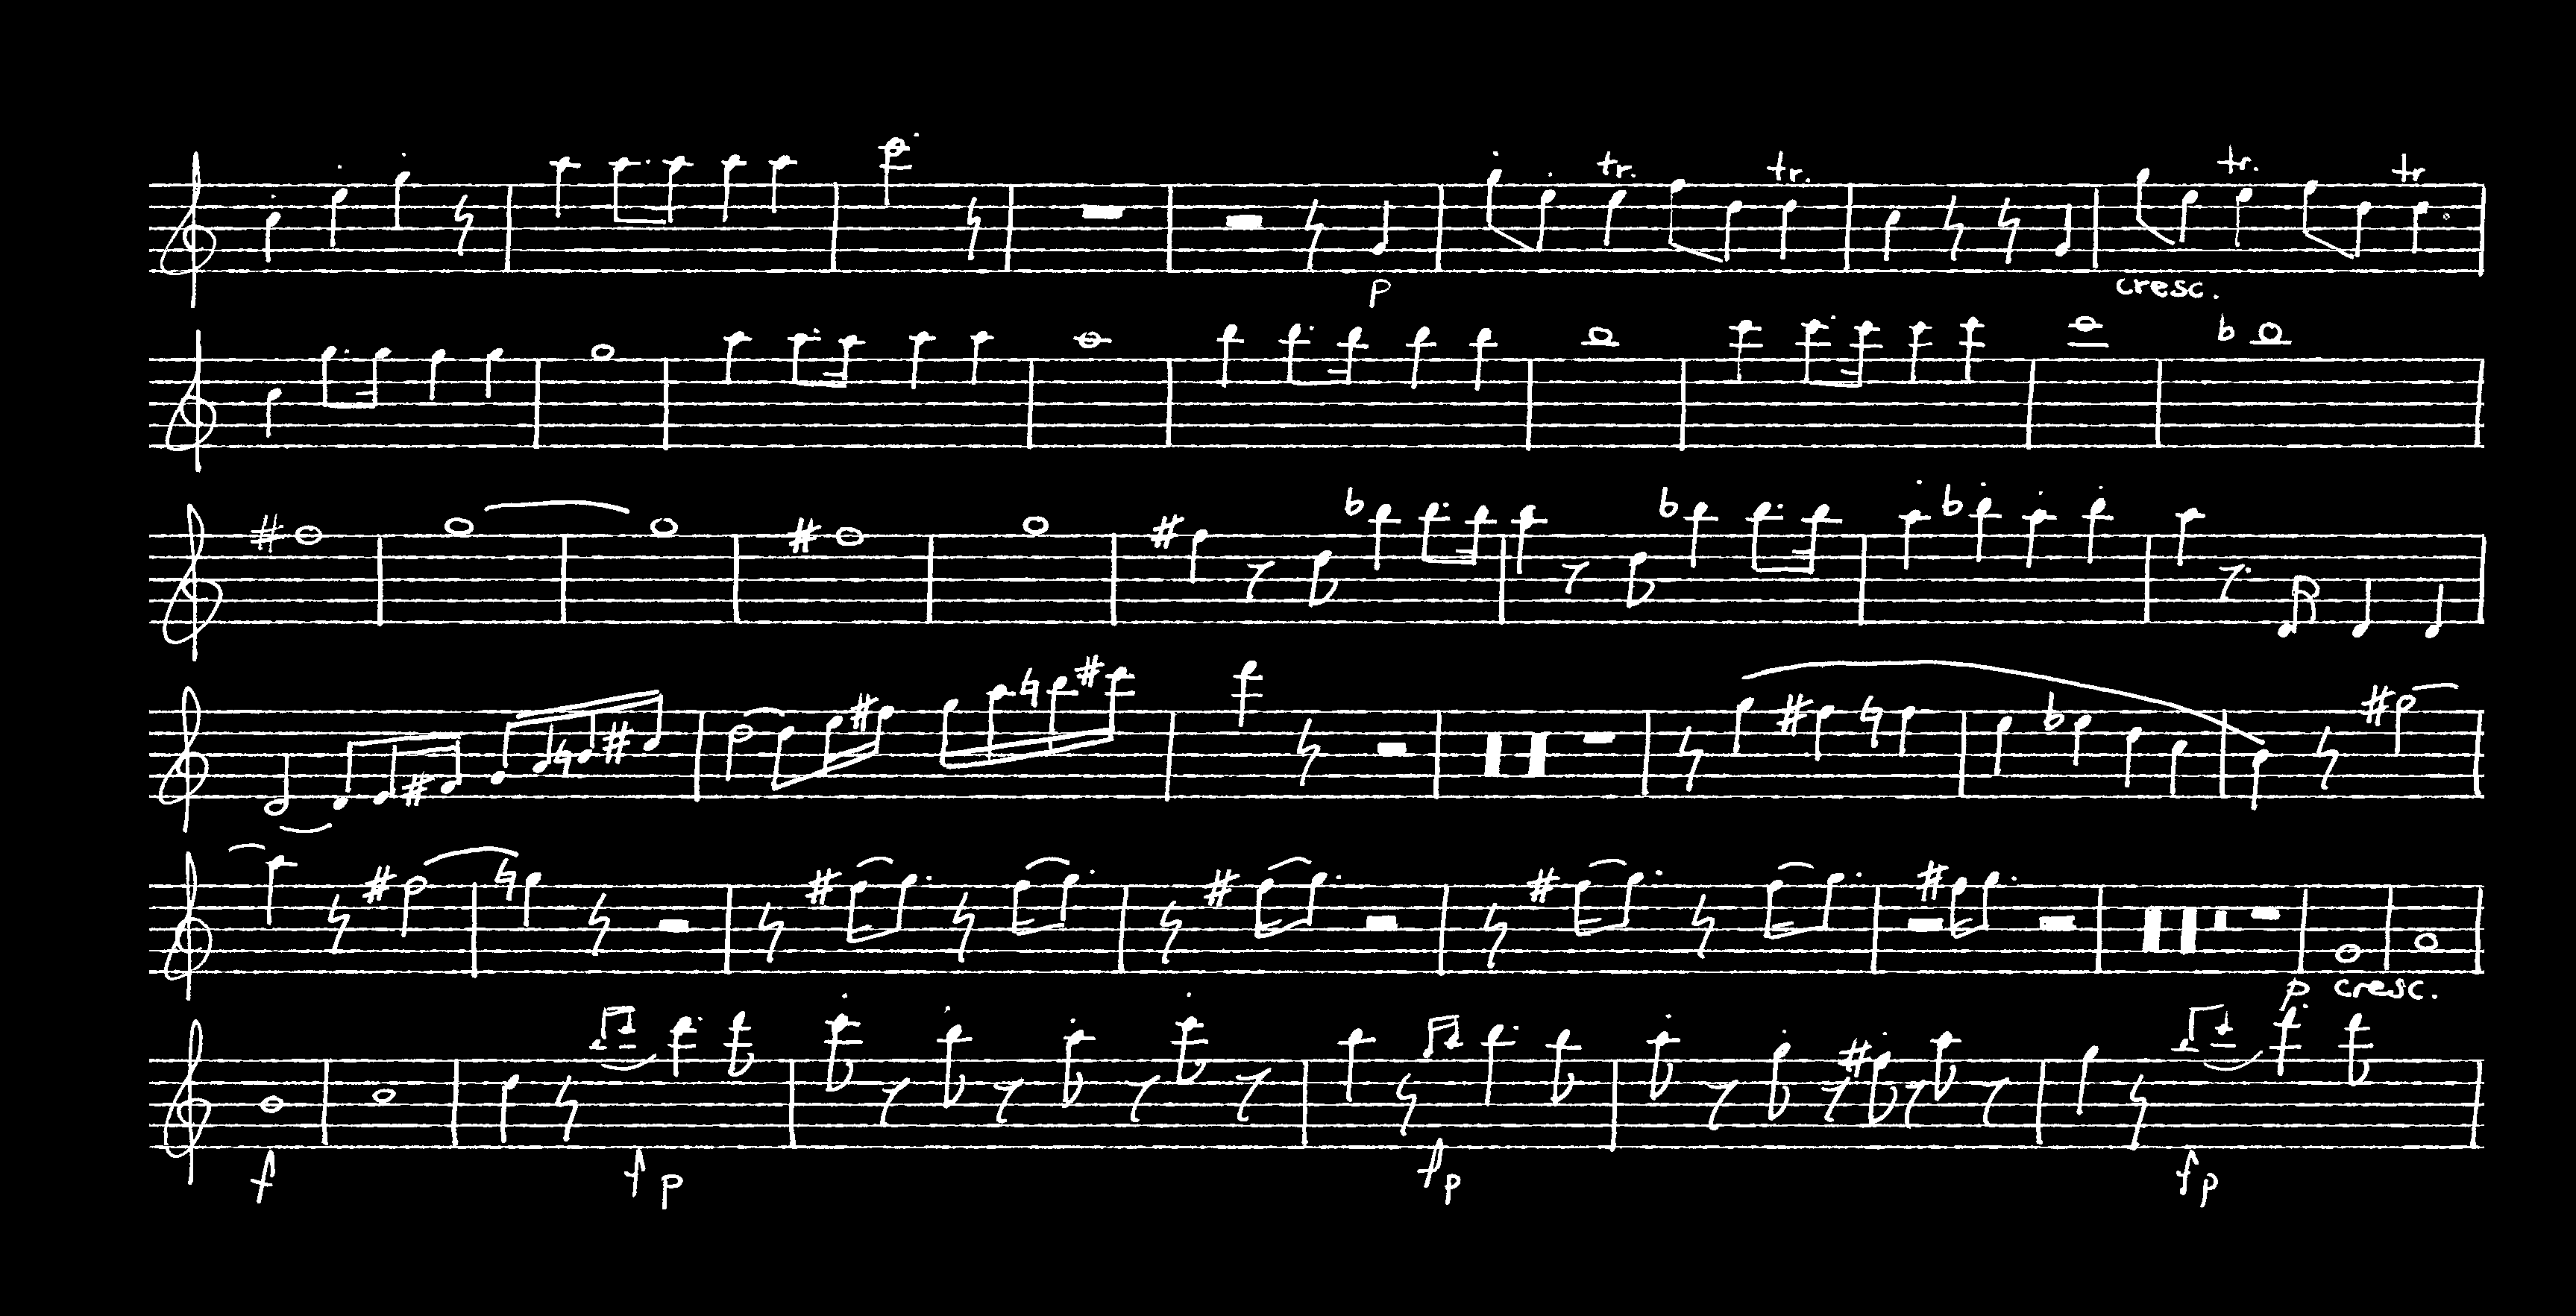 tr. tr. tr. tr
p cresc.
p cresc.
f f p f p f p